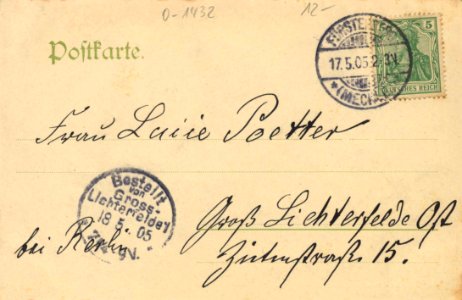 0-1432
12.-
Postkarte.
5
FÜRSTE
17.5.05.2-3N
*(MECK
CHES REICH
Frau Lucie Poetter
Bestellt
von
Gross-
Lichterfelde 1
18 5. 05
N.
Groß Lichterfelde Ost
bei Berlin
Zietenstraße 15.